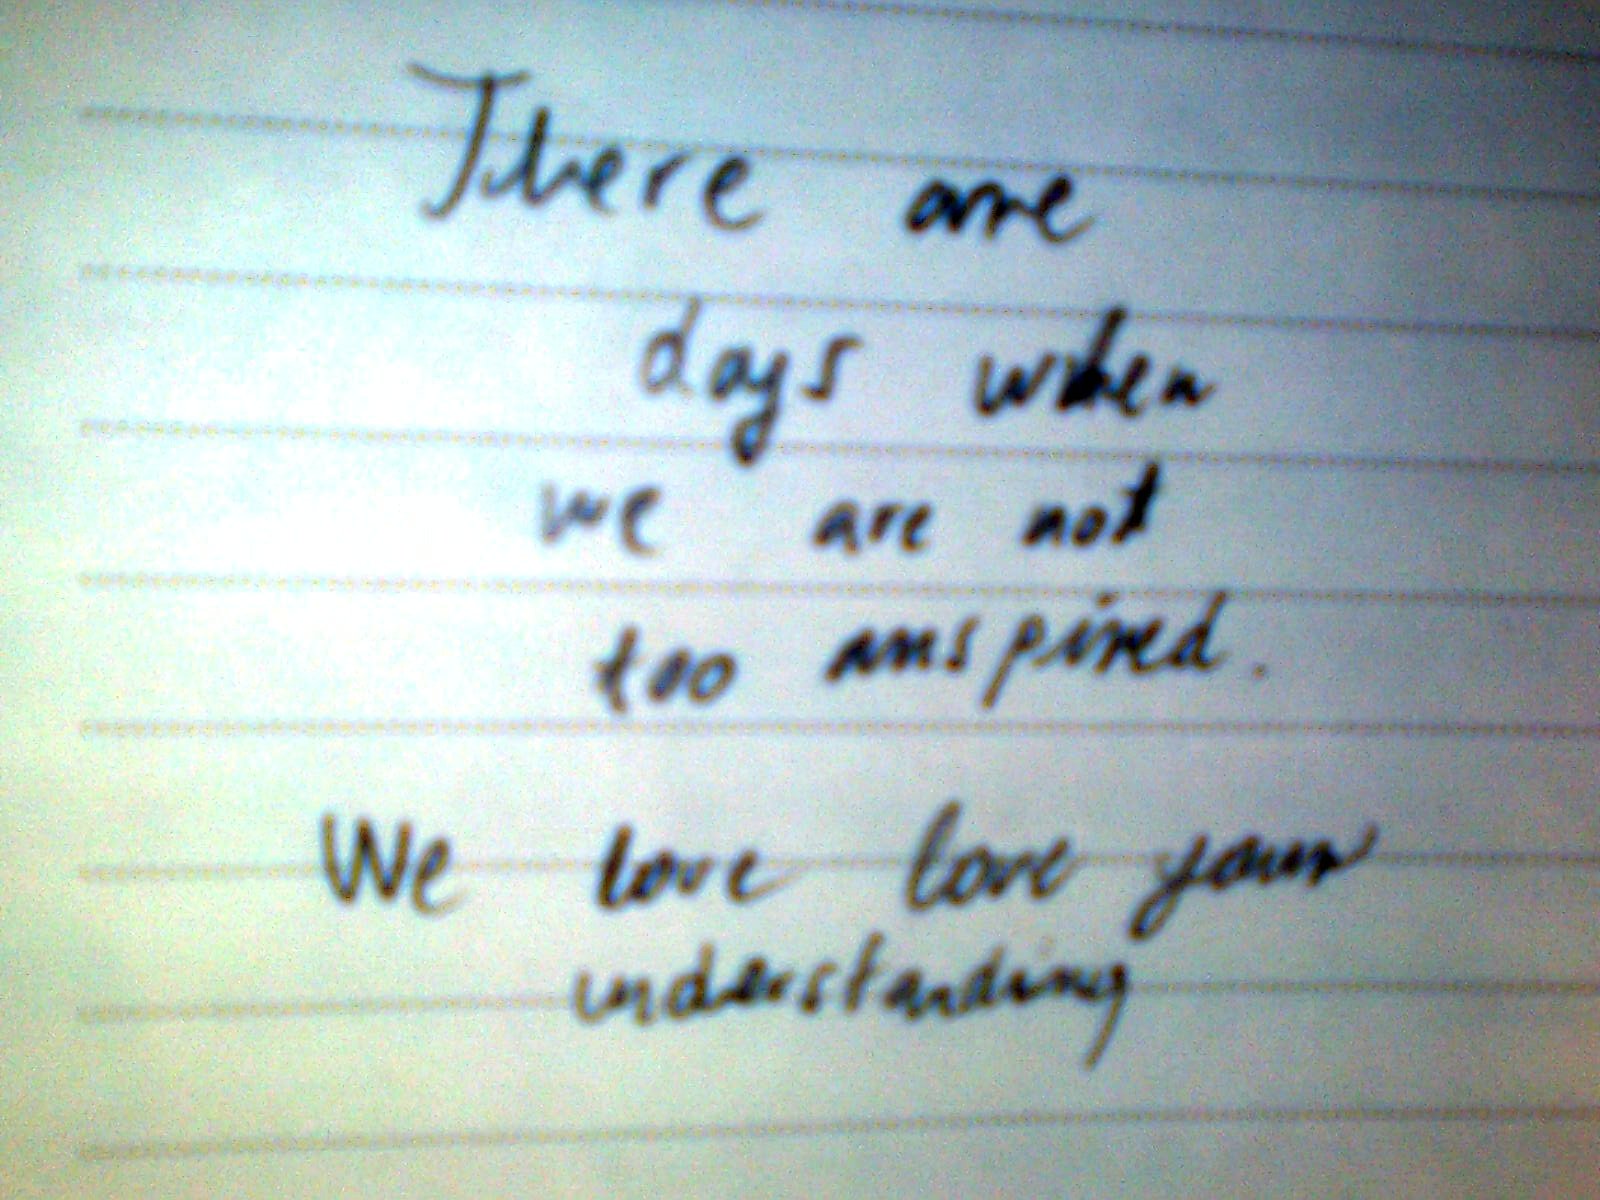 There are
days when
we are not
too anspired.
We love love your
understanding